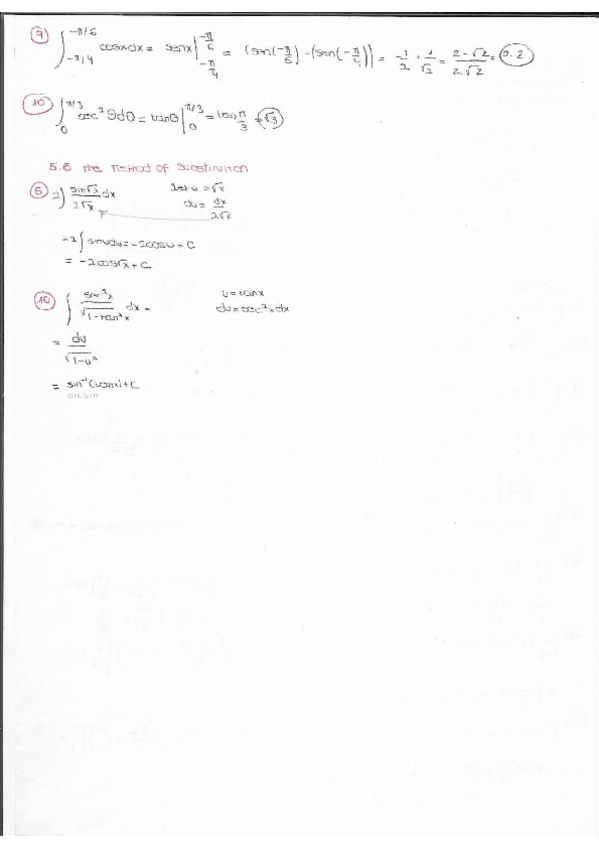 9 ∫_{-π/4}^{-π/6} cosxdx = senx |_{-π/4}^{-π/6} = (sen(-π/6) - (sen(-π/4)) = -1/2 + 1/√2 = 2-√2 / 2√2 = 0.2
10 ∫_0^{π/3} sec² θdθ = tanθ |_0^{π/3} = tan π/3 = √3
5.6 The Method of Substitution
6 2∫ sin√x / 2√x dx let u = √x
du = dx / 2√x
=2∫ sinudu = -2cosu + C
= -2cos√x + C
∫ sec²x / √1-tan²x dx = u = tanx
du = sec²x dx
= du / √1-u²
= sin⁻¹(tanx)+C